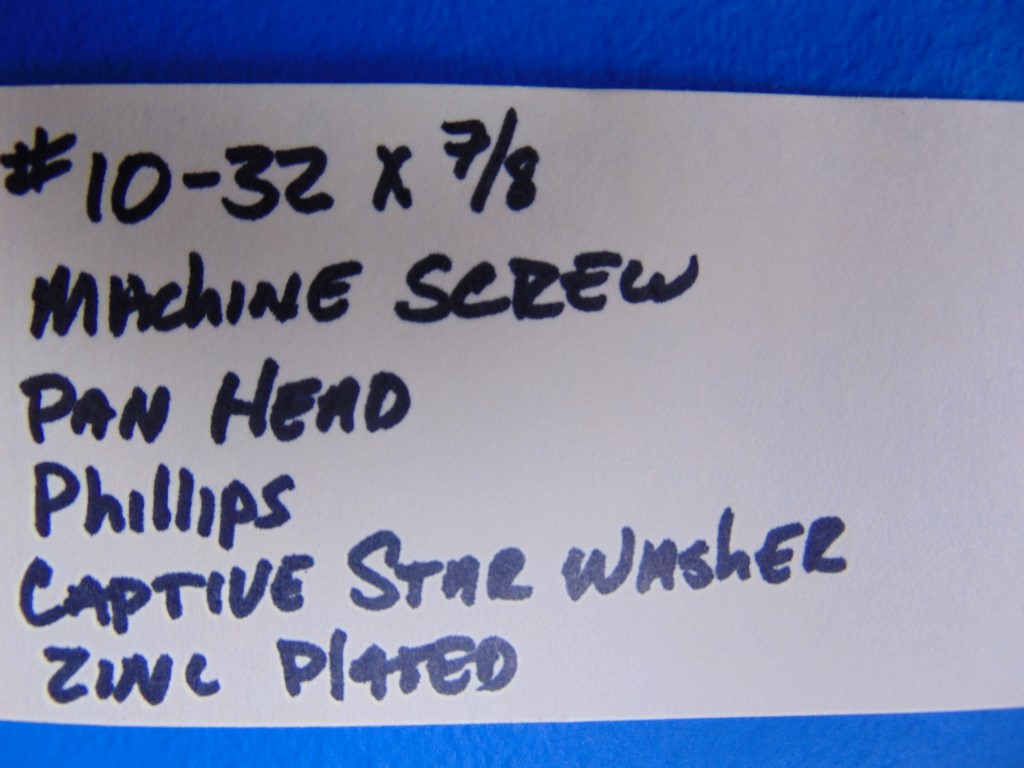 #10-32 X 7/8
MACHINE SCREW
PAN HEAD
Phillips
CAPTIVE STAR WASHER
ZINC PlATED